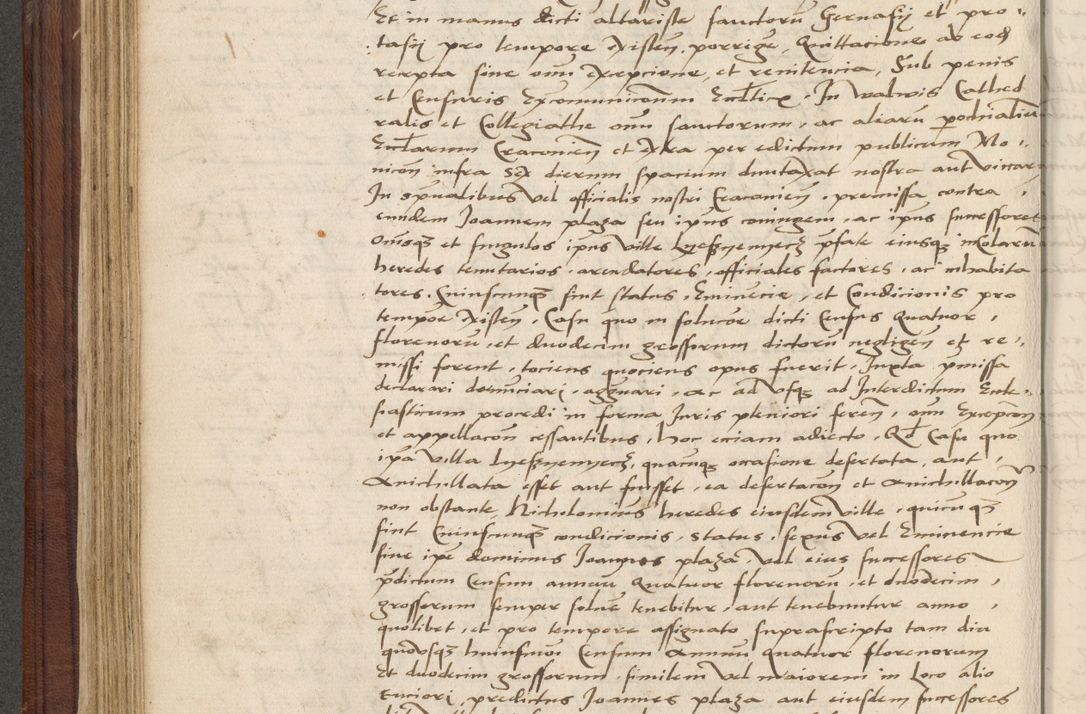 Et in manus dicti altariste sanctorũ Geruasÿ et pro
tasÿ pro tempore existeñ. porrige, Quittacione ab eod̃
recepta sine omi excepcione, et renitencia, Sub penis
et Censuris Excomunicaonum Eccl̃tice. In valuis Cathed
ralis et Collegiathe omĩ sanctorum, ac aliarũ parochialiũ
Eccl̃iarum Cracouieñ et extra per edictum publicum Mo
nicoñ infra Sex dierum spacium duntaxat nostra aut viccar
In sp̃ualibus vel officialis nostri Cracouieñ. premissa contra
eundem Joannem plaza seu ip̃ius coniugem, ac ip̃ius successores
Om̃sqꝫ et singulos ip̃ius ville p̃fate eiusqꝫ incolarũ
heredes tenutarios, arendatores, officiales factores, ac inhabita
tores. Cuiuscunqꝫ sint status, Eminencie, et Condicionis pro
tempore existeñ, Casu quo in solucoẽ dicti Census Quatuor,
florenorũ, et duodecim grossorum dictorũ negligeñ et re
missi forent, tociens quociens opus fuerit, Juxta p̃missa
declarari denunciari, aggrauari, ac ad vsqꝫ ad Interdictum Eccle
siasticum procedi in forma Juris pleniori fereñ, omĩ Excepcõn
et appellacõn cessantibus, hoc eciam adiecto, Qd̃ Casu quo
ip̃a villa quacunqꝫ occasione desertata, aut,
Anichillata esset aut fuisset, ea desertacõn et Anichillacõn
non obstante, Nichilominus heredes eiusdem ville, quicunqꝫ
sint Cuiuscunqꝫ condicionis, status, sexus vel Eminencie
siue ip̃e dominus Joannes plaza, vel eius successores
p̃dictum Censum annuũ Quatuor florenorũ, et duodecim,
grossorum semper soluẽ tenebitur, aut tenebuntur anno,
quolibet, et pro tempore assignato suprascripto tam diu
quousqꝫ huiusmõi Censum Annuũ quatuor florenorum
Et duodecim grossorum, similem vel maiorem in Loco alio
tuciori, predictus Joannes plaza aut eiusdem successores